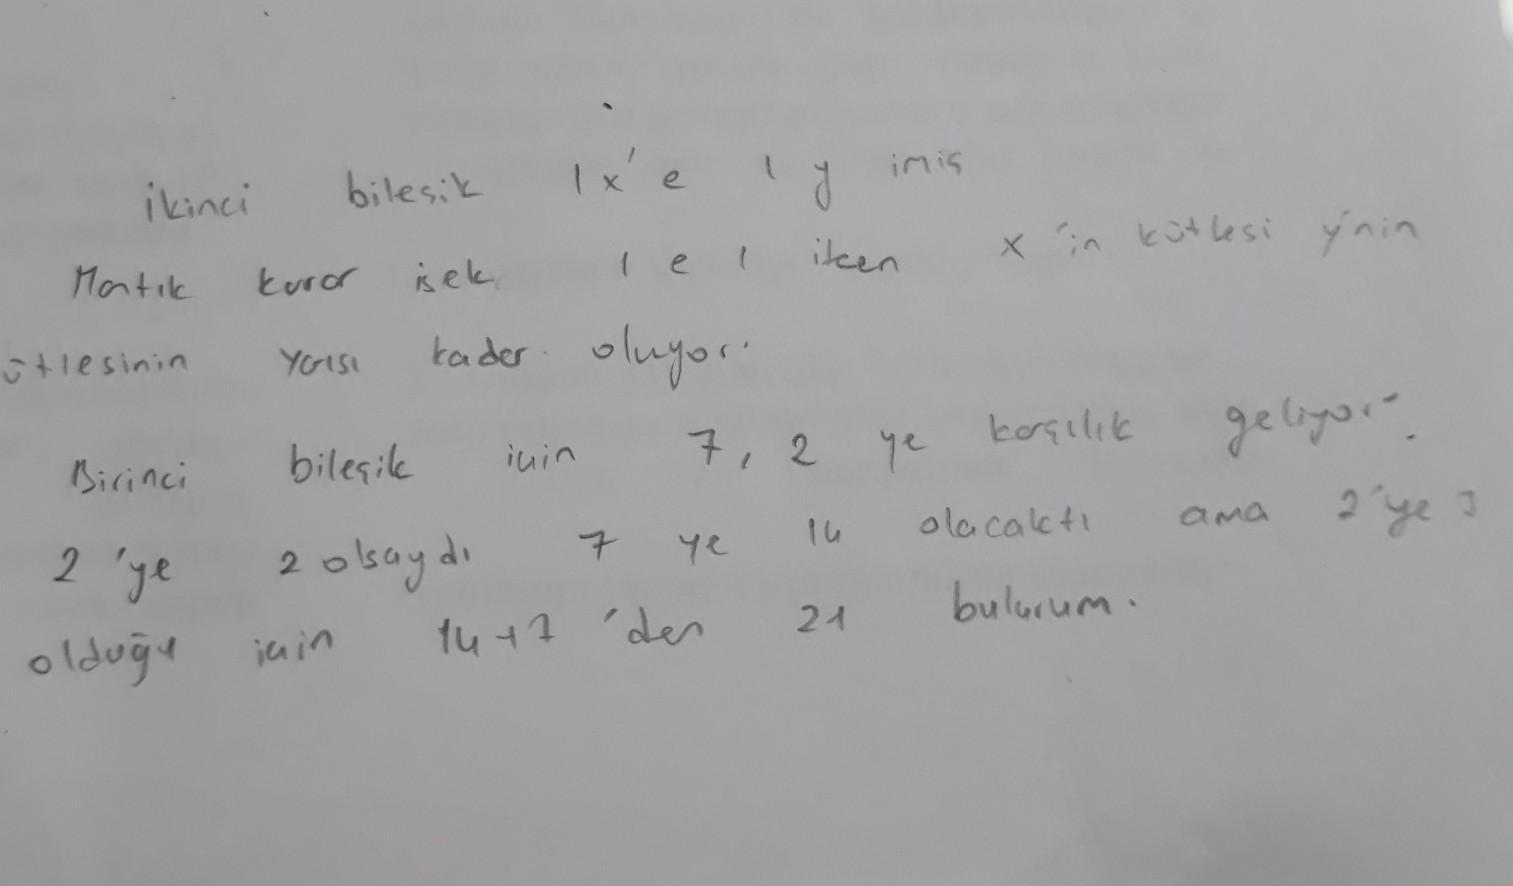 İkinci bileşik 1 x'e 1 y imiş
Mantık kurar isek 1 e 1 iken x'in kütlesi y'nin
ütlesinin yarısı kadar oluyor.
Birinci bileşik için 7, 2 ye karşılık geliyor.
2'ye 2 olsaydı 7 ye 14 olacaktı ama 2'ye 3
olduğu için 14+7'den 21 bulurum.